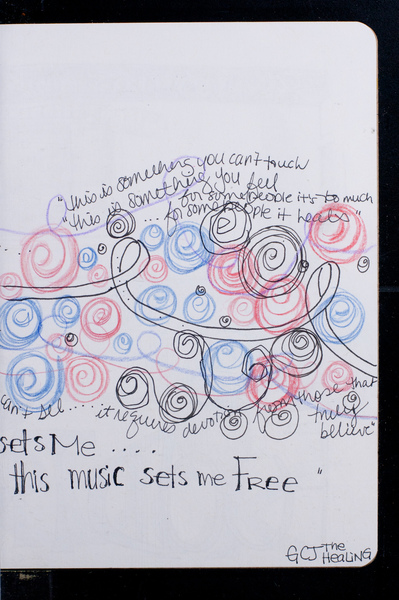 "This is something you can't touch
"This is something you feel
for some people it's to much
... for some people it heals"
can't see.... it requires devotion from those that
truly
believe"
sets Me ....
this music sets me Free "
GCJ The
Healing